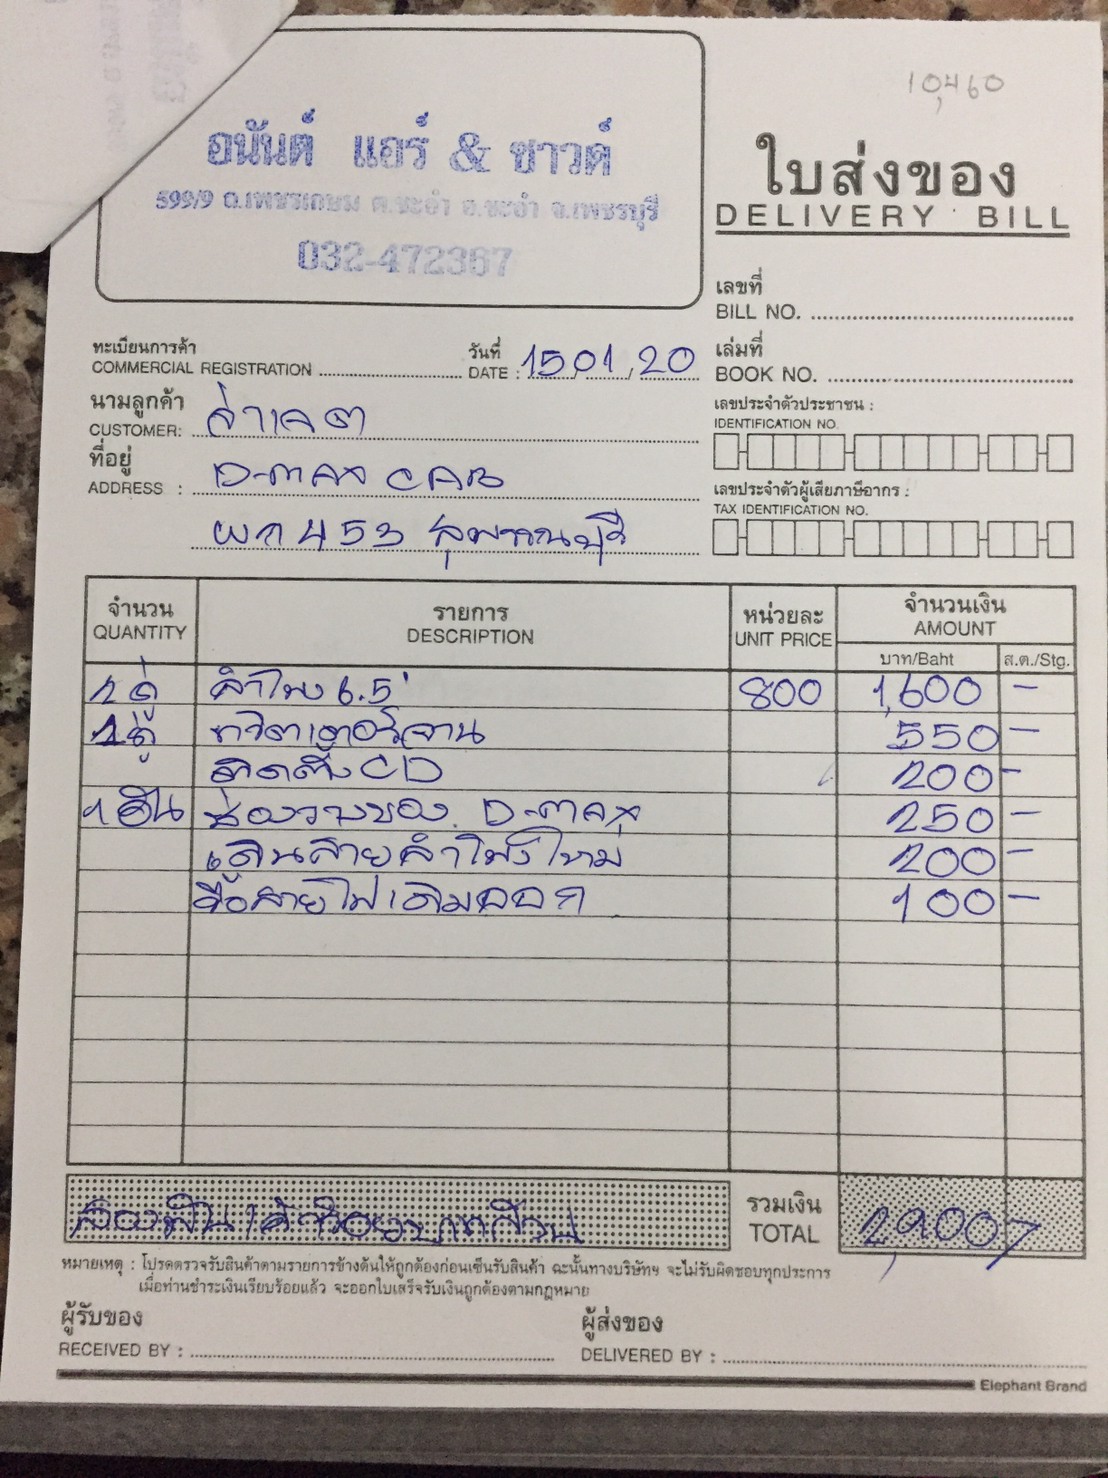 10,460
อนันต์ แอร์ & ซาวด์
599/9 ถ.เพชรเกษม ต.ชะอำ อ.ชะอำ จ.เพชรบุรี
032-472367
ใบส่งของ
DELIVERY BILL
เลขที่
BILL NO.
ทะเบียนการค้า
COMMERCIAL REGISTRATION
วันที่
DATE : 15/01/20
เล่มที่
BOOK NO.
นามลูกค้า
CUSTOMER:
เลขประจำตัวประชาชน :
IDENTIFICATION NO.
ที่อยู่
ADDRESS : D-MAX CAB
เลขประจำตัวผู้เสียภาษีอากร :
TAX IDENTIFICATION NO.
ผก 453 สุพรรณบุรี
จำนวน รายการ หน่วยละ จำนวนเงิน
QUANTITY DESCRIPTION UNIT PRICE AMOUNT
บาท/Baht ส.ต./Stg.
2 คู่ ลำโพง 6.5" 800 1,600 -
1 คู่ ทวิตเตอร์จาน 550 -
ติดตั้ง CD 200 -
1 อัน ช่องวางของ D-MAX 250 -
เดินสายลำโพงใหม่ 200 -
รื้อสายไฟเดิมออก 100 -
สองพันเก้าร้อยบาทถ้วน
รวมเงิน
TOTAL 2,900
หมายเหตุ : โปรดตรวจรับสินค้าตามรายการข้างต้นให้ถูกต้องก่อนเซ็นรับสินค้า ฉะนั้นทางบริษัทฯ จะไม่รับผิดชอบทุกประการ
เมื่อท่านชำระเงินเรียบร้อยแล้ว จะออกใบเสร็จรับเงินถูกต้องตามกฎหมาย
ผู้รับของ
RECEIVED BY :
ผู้ส่งของ
DELIVERED BY :
Elephant Brand